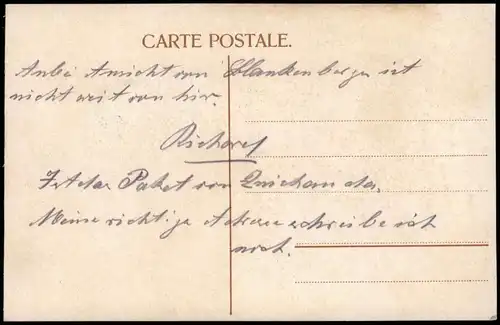 CARTE POSTALE.
Anbei Ansicht von Blankenberge ist
nicht weit von hir.
Richard
Ist das Paket von da.
Meine richtige Adresse schreibe ich
noch.